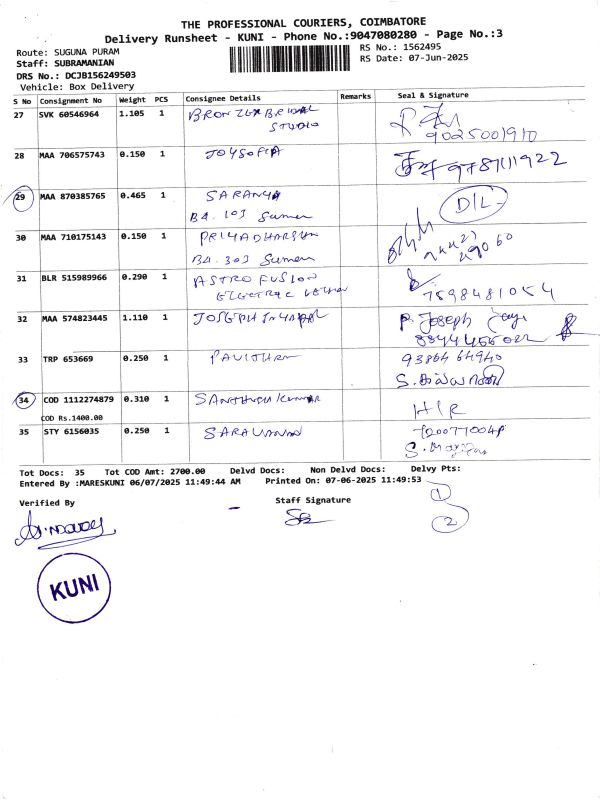 THE PROFESSIONAL COURIERS, COIMBATORE
Delivery Runsheet - KUNI - Phone No.:9047080280 - Page No.:3
Route: SUGUNA PURAM
RS No.: 1562495
Staff: SUBRAMANIAN
RS Date: 07-Jun-2025
DRS No.: DCJB156249503
Vehicle: Box Delivery
S No Consignment No Weight PCS Consignee Details Remarks Seal & Signature
27 SVK 60546964 1.105 1 STUDIO
9025001910
28 MAA 706575743 0.150 1 JOYSOFIA
29 MAA 870385765 0.465 1 SARANYA D/L
B4. 103 Sumen
30 MAA 710175143 0.150 1
B4. 303 Sumen
31 BLR 515989966 0.290 1 ASTRO FUSION
7598481054
32 MAA 574823445 1.110 1 JOSEPH P. Joseph
33 TRP 653669 0.250 1 PAVITHRA 93864 64940
34 COD 1112274879 0.310 1 H/R
COD Rs.1400.00
35 STY 6156035 0.250 1 SARAVANAN
Tot Docs: 35 Tot COD Amt: 2700.00 Delvd Docs: Non Delvd Docs: Delvy Pts:
Entered By :MARESKUNI 06/07/2025 11:49:44 AM Printed On: 07-06-2025 11:49:53
Verified By Staff Signature
1
2
KUNI